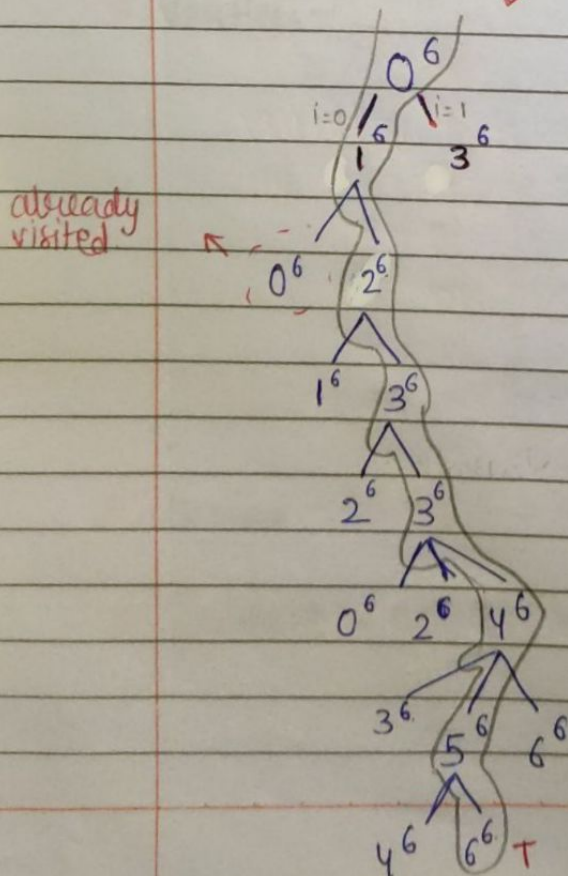 0⁶
i=0 i=1
1⁶ 3⁶
already
visited
0⁶ 2⁶
1⁶ 3⁶
2⁶ 3⁶
0⁶ 2⁶ 4⁶
3⁶ 5⁶ 6⁶
4⁶ 6⁶ T